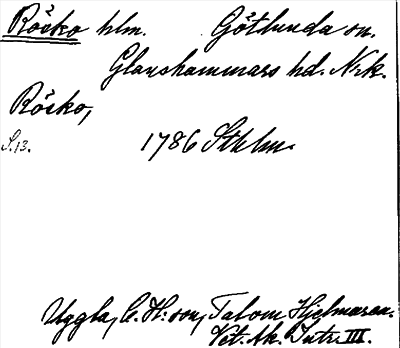 Röcko hlm. Götlunda sn.
Glanshammars hd. Nrk.
Röcko,
S. 13. 1786 Sthlm.
Uggla, C. H:son, Tal om Hjelmaren.
Vet. Ak. Intr. III.